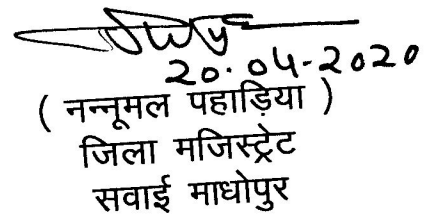 20.04-2020
( नन्नूमल पहाड़िया )
जिला मजिस्ट्रेट
सवाई माधोपुर